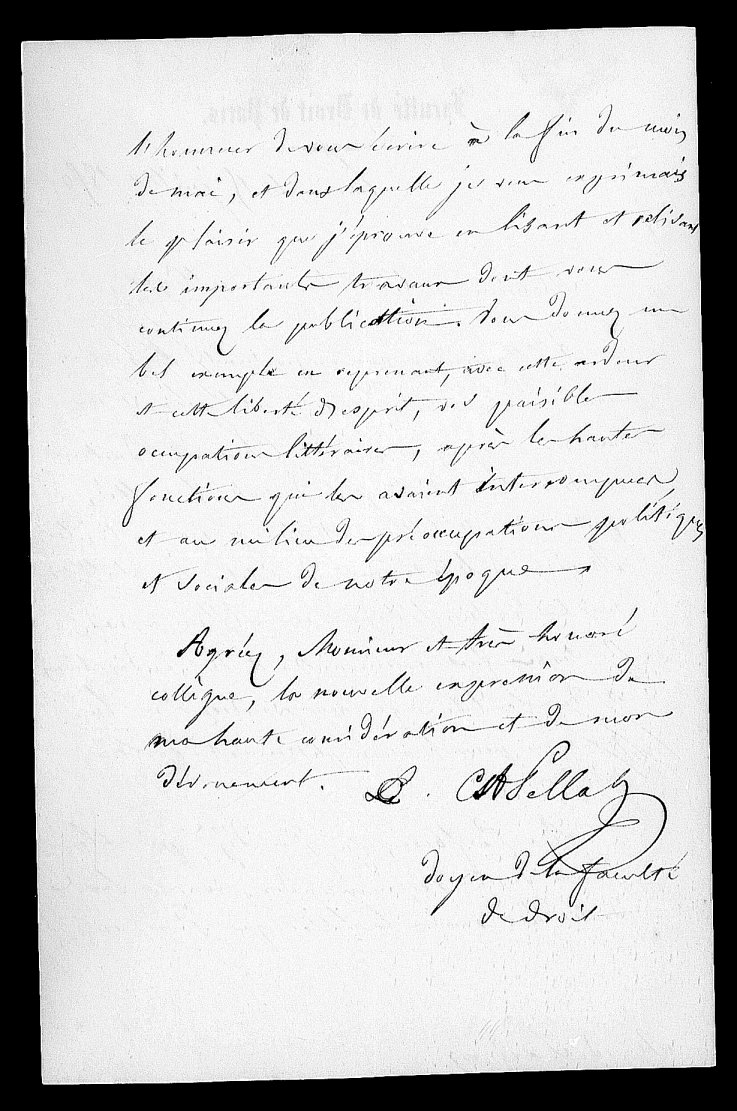 l'honneur de vous écrire à la fin du mois
de mai, et dans laquelle je vous exprimais
le plaisir que j'éprouve en lisant et relisant
les importants travaux dont vous
continuez la publication. Vous donnez un
bel exemple en reprenant, avec cette ardeur
et cette liberté d'esprit, vos paisibles
occupations littéraires, après les hautes
fonctions qui les avaient interrompues,
et au milieu des préoccupations politiques
et sociales de notre époque.
Agréez, Monsieur et très honoré
collègue, la nouvelle expression de
ma haute considération et de mon
dévouement. C. A. Pellat
doyen de la faculté
de droit